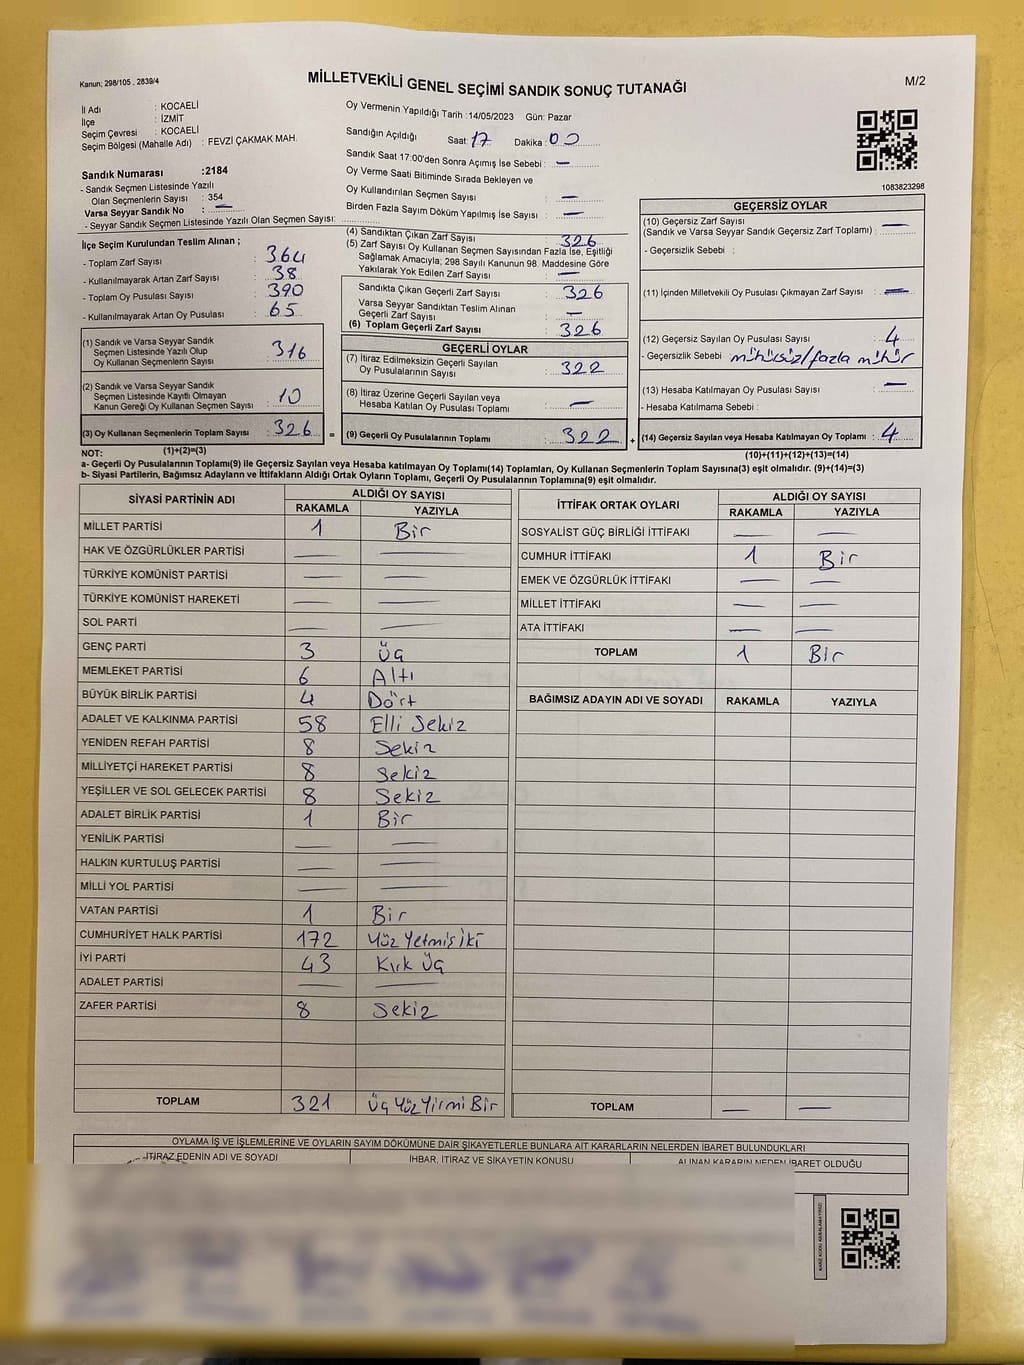 Kanun; 298/105 , 2839/4
MİLLETVEKİLİ GENEL SEÇİMİ SANDIK SONUÇ TUTANAĞI
M/2
İl Adı : KOCAELİ
İlçe : İZMİT
Seçim Çevresi : KOCAELİ
Seçim Bölgesi (Mahalle Adı) : FEVZİ ÇAKMAK MAH.
Sandık Numarası :2184
- Sandık Seçmen Listesinde Yazılı
Olan Seçmenlerin Sayısı : 354
Varsa Seyyar Sandık No : —
- Seyyar Sandık Seçmen Listesinde Yazılı Olan Seçmen Sayısı:
Oy Vermenin Yapıldığı Tarih :14/05/2023 Gün: Pazar
Sandığın Açıldığı Saat: 17 Dakika: 00
Sandık Saat 17:00'den Sonra Açımış İse Sebebi : —
Oy Verme Saati Bitiminde Sırada Bekleyen ve
Oy Kullandırılan Seçmen Sayısı : —
Birden Fazla Sayım Döküm Yapılmış İse Sayısı : —
1083823298
İlçe Seçim Kurulundan Teslim Alınan ;
- Toplam Zarf Sayısı : 364
- Kullanılmayarak Artan Zarf Sayısı : 38
- Toplam Oy Pusulası Sayısı : 390
- Kullanılmayarak Artan Oy Pusulası : 65
(1) Sandık ve Varsa Seyyar Sandık
Seçmen Listesinde Yazılı Olup
Oy Kullanan Seçmenlerin Sayısı : 316
(2) Sandık ve Varsa Seyyar Sandık
Seçmen Listesinde Kayıtlı Olmayan
Kanun Gereği Oy Kullanan Seçmen Sayısı : 10
(3) Oy Kullanan Seçmenlerin Toplam Sayısı : 326
(1)+(2)=(3)
(4) Sandıktan Çıkan Zarf Sayısı : 326
(5) Zarf Sayısı Oy Kullanan Seçmen Sayısından Fazla İse, Eşitliği
Sağlamak Amacıyla; 298 Sayılı Kanunun 98. Maddesine Göre
Yakılarak Yok Edilen Zarf Sayısı : —
Sandıkta Çıkan Geçerli Zarf Sayısı : 326
Varsa Seyyar Sandıktan Teslim Alınan
Geçerli Zarf Sayısı : —
(6) Toplam Geçerli Zarf Sayısı : 326
GEÇERLİ OYLAR
(7) İtiraz Edilmeksizin Geçerli Sayılan
Oy Pusulalarının Sayısı : 322
(8) İtiraz Üzerine Geçerli Sayılan veya
Hesaba Katılan Oy Pusulası Toplamı : —
= (9) Geçerli Oy Pusulalarının Toplamı : 322 +
GEÇERSİZ OYLAR
(10) Geçersiz Zarf Sayısı
(Sandık ve Varsa Seyyar Sandık Geçersiz Zarf Toplamı) : —
- Geçersizlik Sebebi :
(11) İçinden Milletvekili Oy Pusulası Çıkmayan Zarf Sayısı : —
(12) Geçersiz Sayılan Oy Pusulası Sayısı : 4
- Geçersizlik Sebebi : mühürsüz/fazla mühür
(13) Hesaba Katılmayan Oy Pusulası Sayısı : —
- Hesaba Katılmama Sebebi :
(14) Geçersiz Sayılan veya Hesaba Katılmayan Oy Toplamı : 4
(10)+(11)+(12)+(13)=(14)
NOT:
a- Geçerli Oy Pusulalarının Toplamı(9) ile Geçersiz Sayılan veya Hesaba katılmayan Oy Toplamı(14) Toplamları, Oy Kullanan Seçmenlerin Toplam Sayısına(3) eşit olmalıdır. (9)+(14)=(3)
b- Siyasi Partilerin, Bağımsız Adayların ve İttifakların Aldığı Ortak Oyların Toplamı, Geçerli Oy Pusulalarının Toplamına(9) eşit olmalıdır.
SİYASİ PARTİNİN ADI ALDIĞI OY SAYISI
RAKAMLA YAZIYLA
MİLLET PARTİSİ 1 Bir
HAK VE ÖZGÜRLÜKLER PARTİSİ — —
TÜRKİYE KOMÜNİST PARTİSİ — —
TÜRKİYE KOMÜNİST HAREKETİ — —
SOL PARTİ — —
GENÇ PARTİ 3 Üç
MEMLEKET PARTİSİ 6 Altı
BÜYÜK BİRLİK PARTİSİ 4 Dört
ADALET VE KALKINMA PARTİSİ 58 Elli Sekiz
YENİDEN REFAH PARTİSİ 8 Sekiz
MİLLİYETÇİ HAREKET PARTİSİ 8 Sekiz
YEŞİLLER VE SOL GELECEK PARTİSİ 8 Sekiz
ADALET BİRLİK PARTİSİ 1 Bir
YENİLİK PARTİSİ — —
HALKIN KURTULUŞ PARTİSİ — —
MİLLİ YOL PARTİSİ — —
VATAN PARTİSİ 1 Bir
CUMHURİYET HALK PARTİSİ 172 Yüz Yetmiş iki
İYİ PARTİ 43 Kırk Üç
ADALET PARTİSİ — —
ZAFER PARTİSİ 8 Sekiz
TOPLAM 321 Üç Yüz Yirmi Bir
İTTİFAK ORTAK OYLARI ALDIĞI OY SAYISI
RAKAMLA YAZIYLA
SOSYALİST GÜÇ BİRLİĞİ İTTİFAKI — —
CUMHUR İTTİFAKI 1 Bir
EMEK VE ÖZGÜRLÜK İTTİFAKI — —
MİLLET İTTİFAKI — —
ATA İTTİFAKI — —
TOPLAM 1 Bir
BAĞIMSIZ ADAYIN ADI VE SOYADI RAKAMLA YAZIYLA
TOPLAM — —
OYLAMA İŞ VE İŞLEMLERİNE VE OYLARIN SAYIM DÖKÜMÜNE DAİR ŞİKAYETLERLE BUNLARA AİT KARARLARIN NELERDEN İBARET BULUNDUKLARI
İTİRAZ EDENİN ADI VE SOYADI İHBAR, İTİRAZ VE ŞİKAYETİN KONUSU ALINAN KARARIN NEDEN İBARET OLDUĞU